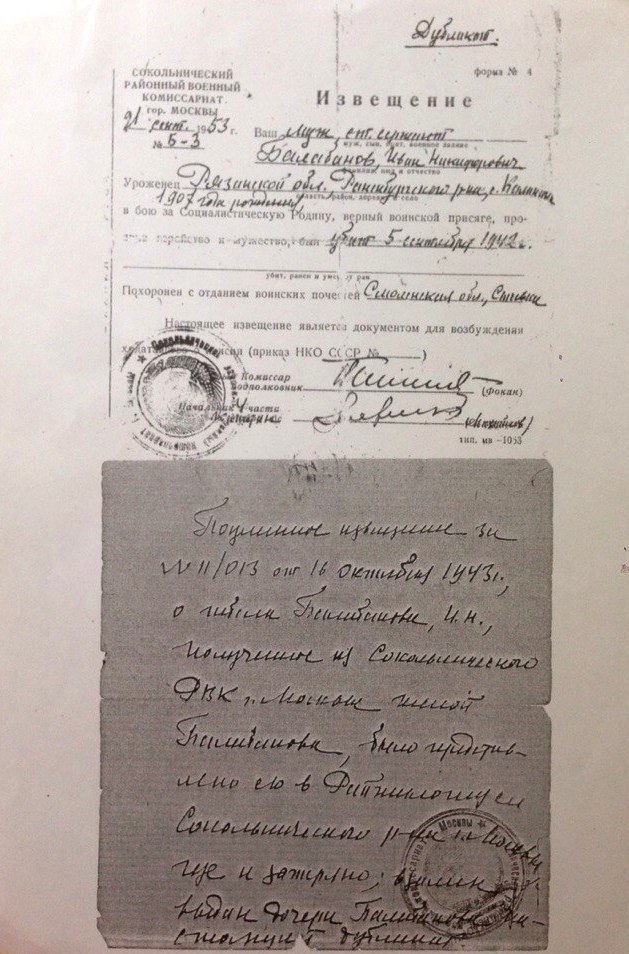 Дубликат.
форма № 4
СОКОЛЬНИЧЕСКИЙ
РАЙОННЫЙ ВОЕННЫЙ
КОМИССАРИАТ.
гор. МОСКВЫ
21 сент. 1953 г.
№ 5-3
Извещение
Ваш муж, ст. сержант
муж, сын, брат, военное звание
Балабанов, Иван Никифорович
фамилия, имя и отчество
Уроженец Рязанской обл. р-на, с.
область, район, деревня и село
1907 года рождения,
в бою за Социалистическую Родину, верный воинской присяге, про-
явив геройство и мужество, был убит 5 сентября 1942 г.
убит, ранен и умер от ран
Похоронен с отданием воинских почестей Смоленская обл.,
Настоящее извещение является документом для возбуждения
ходатайства о пенсии (приказ НКО СССР № )
Комиссар
подполковник (Фокан)
Начальник 4 части
тип. мв —1053
Подлинное извещение за
№ 11/013 от 16 октября 1943 г.,
о гибели Балабанова, И. Н.,
полученное из Сокольнического
РВК г. Москвы женой
Балабанова, было представ-
лено ею в
Сокольнического р-на г. Москвы
где и затеряно;
выдан дочери Балабанова на-
стоящий дубликат.